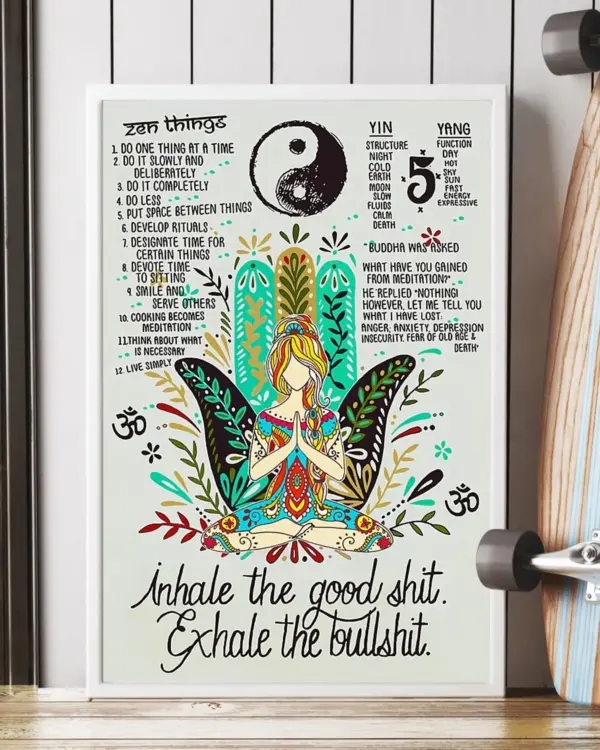 zen things
1. DO ONE THING AT A TIME
2. DO IT SLOWLY AND
DELIBERATELY
3. DO IT COMPLETELY
4. DO LESS
5. PUT SPACE BETWEEN THINGS
6. DEVELOP RITUALS
7. DESIGNATE TIME FOR
CERTAIN THINGS
8. DEVOTE TIME
TO SITTING
9. SMILE AND
SERVE OTHERS
10. COOKING BECOMES
MEDITATION
11. THINK ABOUT WHAT
IS NECESSARY
12. LIVE SIMPLY
YIN
STRUCTURE
NIGHT
COLD
EARTH
MOON
SLOW
FLUIDS
CALM
DEATH
5
YANG
FUNCTION
DAY
HOT
SKY
SUN
FAST
ENERGY
EXPRESSIVE
"BUDDHA WAS ASKED
WHAT HAVE YOU GAINED
FROM MEDITATION?"
HE REPLIED "NOTHING!
HOWEVER, LET ME TELL YOU
WHAT I HAVE LOST:
ANGER, ANXIETY, DEPRESSION
INSECURITY, FEAR OF OLD AGE &
DEATH"
ॐ
ॐ
inhale the good shit.
Exhale the bullshit.